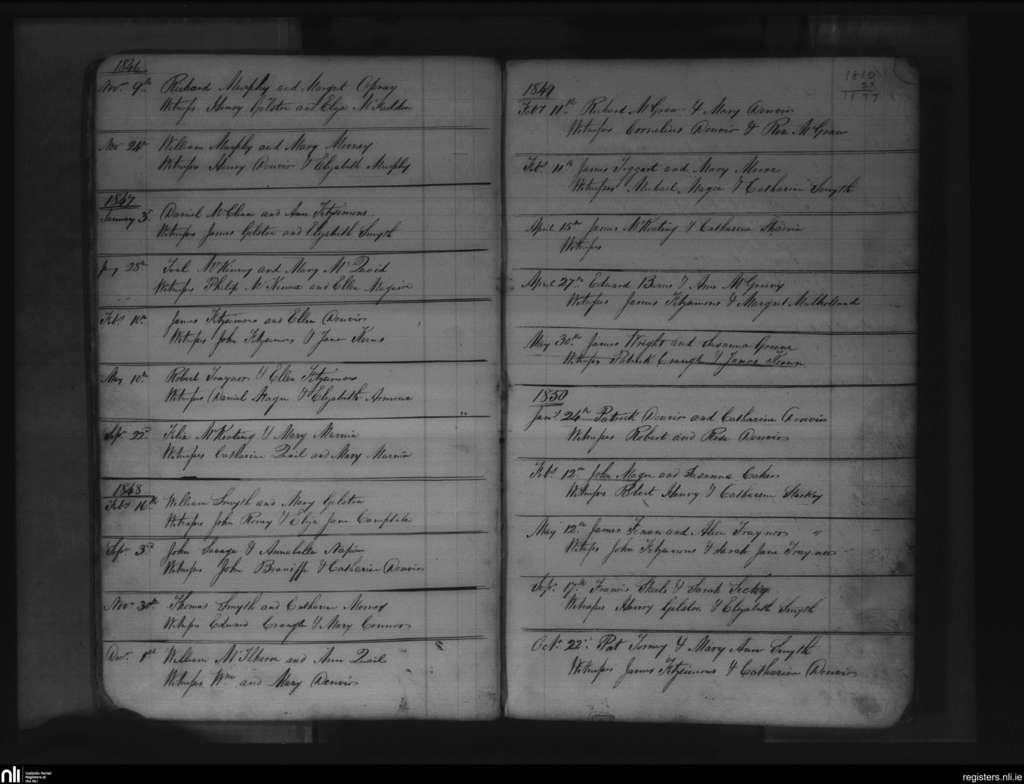 1846
Nov. 9th Richard Murphy and Margret
Witness Henry Gelston and Eliza McFadden
Nov 24th William Murphy and Mary Murray
Witness Henry Denvir & Elizabeth Murphy
1847
January 3 Daniel McClean and Ann Fitzsimons
Witness James Gelston and Elizabeth Smyth
Jany 28th McKinny and Mary McDavid
Witness Philip McKenna and Ellen Maguire
Feby 10th James Fitzsimons and Ellen Denvir
Witness John Fitzsimons & Jane Kerns
May 10th Robert Traynor & Ellen Fitzsimons
Witness Daniel Magee & Elizabeth
Sept. 22nd Felix McKeating & Mary
Witness Catharine Quail and Mary
1848
Feby 16th William Smyth and Mary Gelston
Witness John & Eliza Jane Campbell
Sept. 3rd John Savage & Annabella Napier
Witness John Branniff & Catharine Denvir
Nov. 30th Thomas Smyth and Catharine
Witness Edward Creagh & Mary Connor
Dec. 1st William McIlheron and Ann Quail
Witness Wm and Mary Denvir
1849
Feby 11th Richard McGran & Mary Denvir
Witness Cornelius Denvir & Rose McGran
Feby 11th James Taggart and Mary Moore
Witness Michael Magee & Catharine Smyth
April 15th James McKeating & Catharine
Witness
April 27th Edward Burns & Ann McGreevy
Witness James Fitzsimons & Margret Mulholland
May 30th James Wright and Susanna Greene
Witness Patrick Creagh & James
1850
Jany 24th Patrick Denvir and Catharine Denvir
Witness Robert and Rose Denvir
Feby 12th John Magee and Susanna
Witness Robert Henry & Catharine Starkey
May 12th James and Alice Traynor
Witness John Fitzsimons & Sarah Jane Traynor
Sept. 17th Francis Steele & Sarah
Witness Henry Gelston & Elizabeth Smyth
Oct. 22nd Pat & Mary Ann Smyth
Witness James Fitzsimons & Catharine Denvir
nli Catholic Parish Registers at the NLI
registers.nli.ie